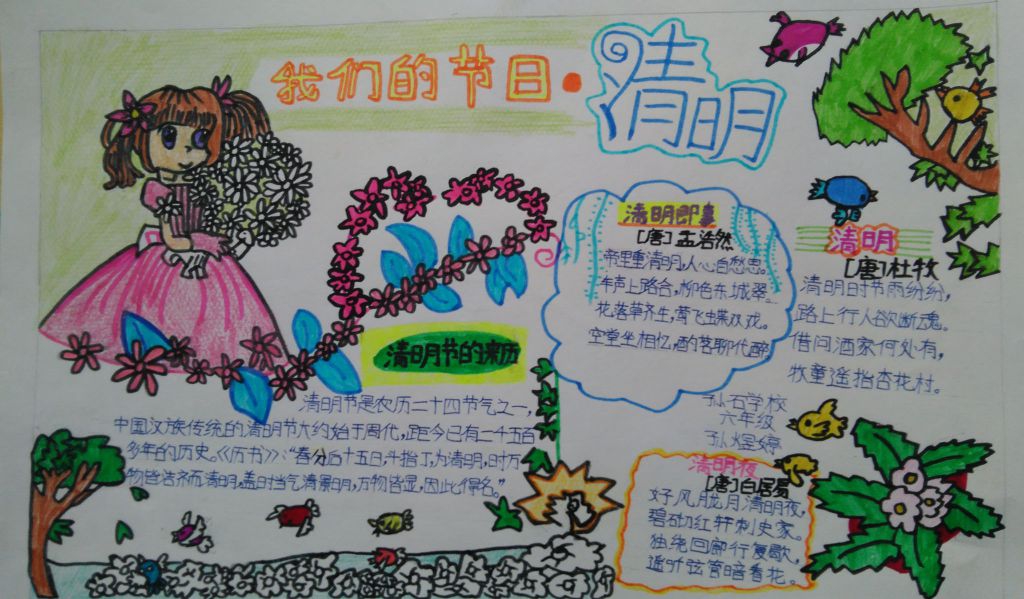 我们的节日·清明
清明节的来历
清明节是农历二十四节气之一，
中国汉族传统的清明节大约始于周代，距今已有二千五百
多年的历史。《历书》：“春分后十五日，斗指丁，为清明，时万
物皆洁齐而清明，盖时当气清景明，万物皆显，因此得名。”
清明即事
[唐]孟浩然
帝里重清明，人心自愁思。
车声上路合，柳色东城翠。
花落草齐生，莺飞蝶双戏。
空堂坐相忆，酌茗聊代醉
清明
[唐]杜牧
清明时节雨纷纷，
路上行人欲断魂。
借问酒家何处有，
牧童遥指杏花村。
孙石学校
六年级
孙煜婷
清明夜
[唐]白居易
好风胧月清明夜，
碧砌红轩刺史家。
独绕回廊行复歇，
遥听弦管暗看花。